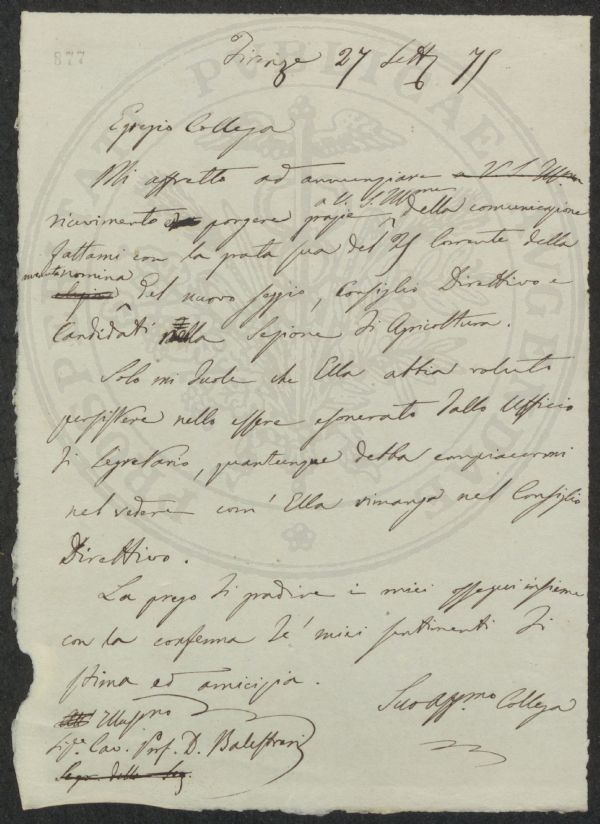 877
Firenze 27 Sett 75
Egregio Collega
Mi affretto ad annunziare a V. S. Illma
a V. S. Illma
ricevimento porgere grazie, della comunicazione
fattami con la grata sua del 25 Corrente della
nomina
del nuovo seggio, Consiglio Direttivo e
Candidati nella Sezione di Agricoltura.
Solo mi duole che Ella abbia voluto
persistere nello essere esonerato dallo Ufficio
di Segretario, quantunque debba compiacermi
nel vedere com' Ella rimanga nel Consiglio
Direttivo.
La prego di gradire i miei ossequi insieme
con la conferma de' miei sentimenti di
stima ed amicizia.
Suo affmo Collega
Illusmo
Sigr. Cav. Prof. D. Balestreri
Segr. della Sez.
PROSPERITATI PUBLICAE AUGENDAE